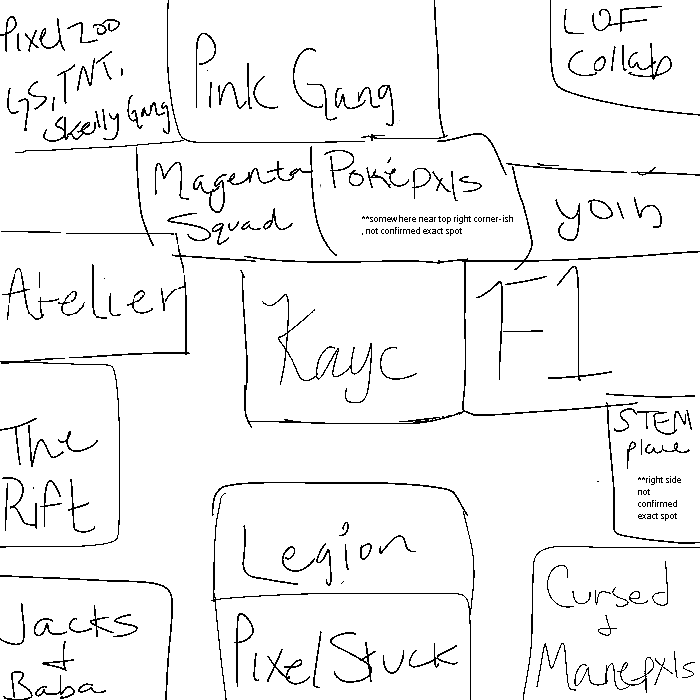 Pixel200
LGS, TNT,
Skelly Gang
Pink Gang
LOF
Collab
Magenta
Squad
Poképxls
**somewhere near top right corner-ish
, not confirmed exact spot
yoin
Atelier
Kayc
F1
The
Rift
STEM
place
**right side
not
confirmed
exact spot
Legion
PixelStuck
Jacks
+
Baba
Cursed
&
Manepxls